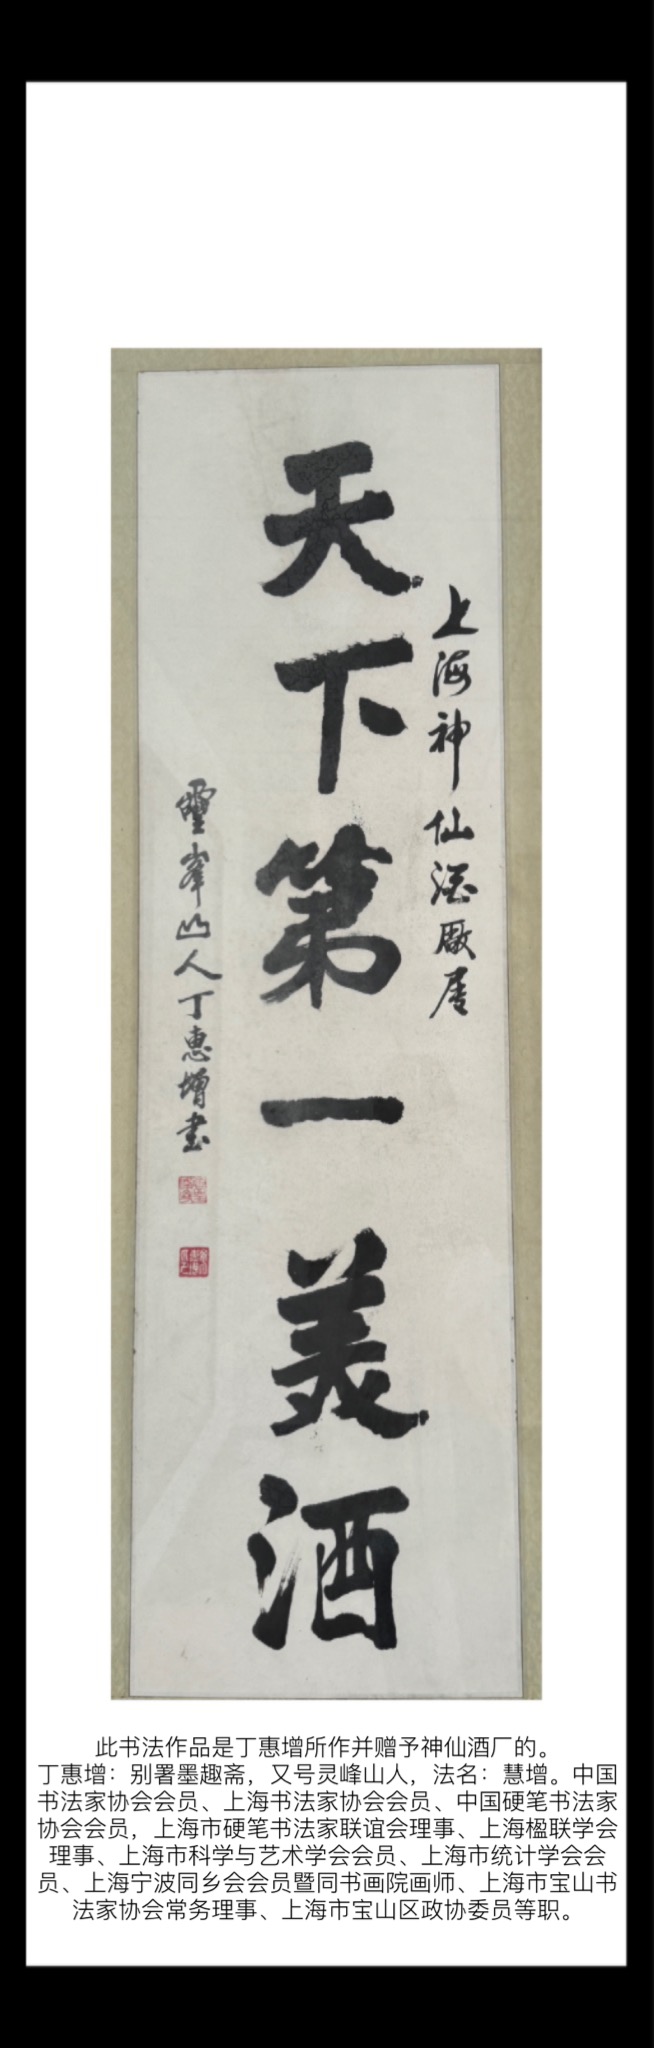 上海神仙酒廠屬
天下第一美酒
靈峯山人丁惠增书
此书法作品是丁惠增所作并赠予神仙酒厂的。
丁惠增：别署墨趣斋，又号灵峰山人，法名：慧增。中国
书法家协会会员、上海书法家协会会员、中国硬笔书法家
协会会员，上海市硬笔书法家联谊会理事、上海楹联学会
理事、上海市科学与艺术学会会员、上海市统计学会会
员、上海宁波同乡会会员暨同书画院画师、上海市宝山书
法家协会常务理事、上海市宝山区政协委员等职。